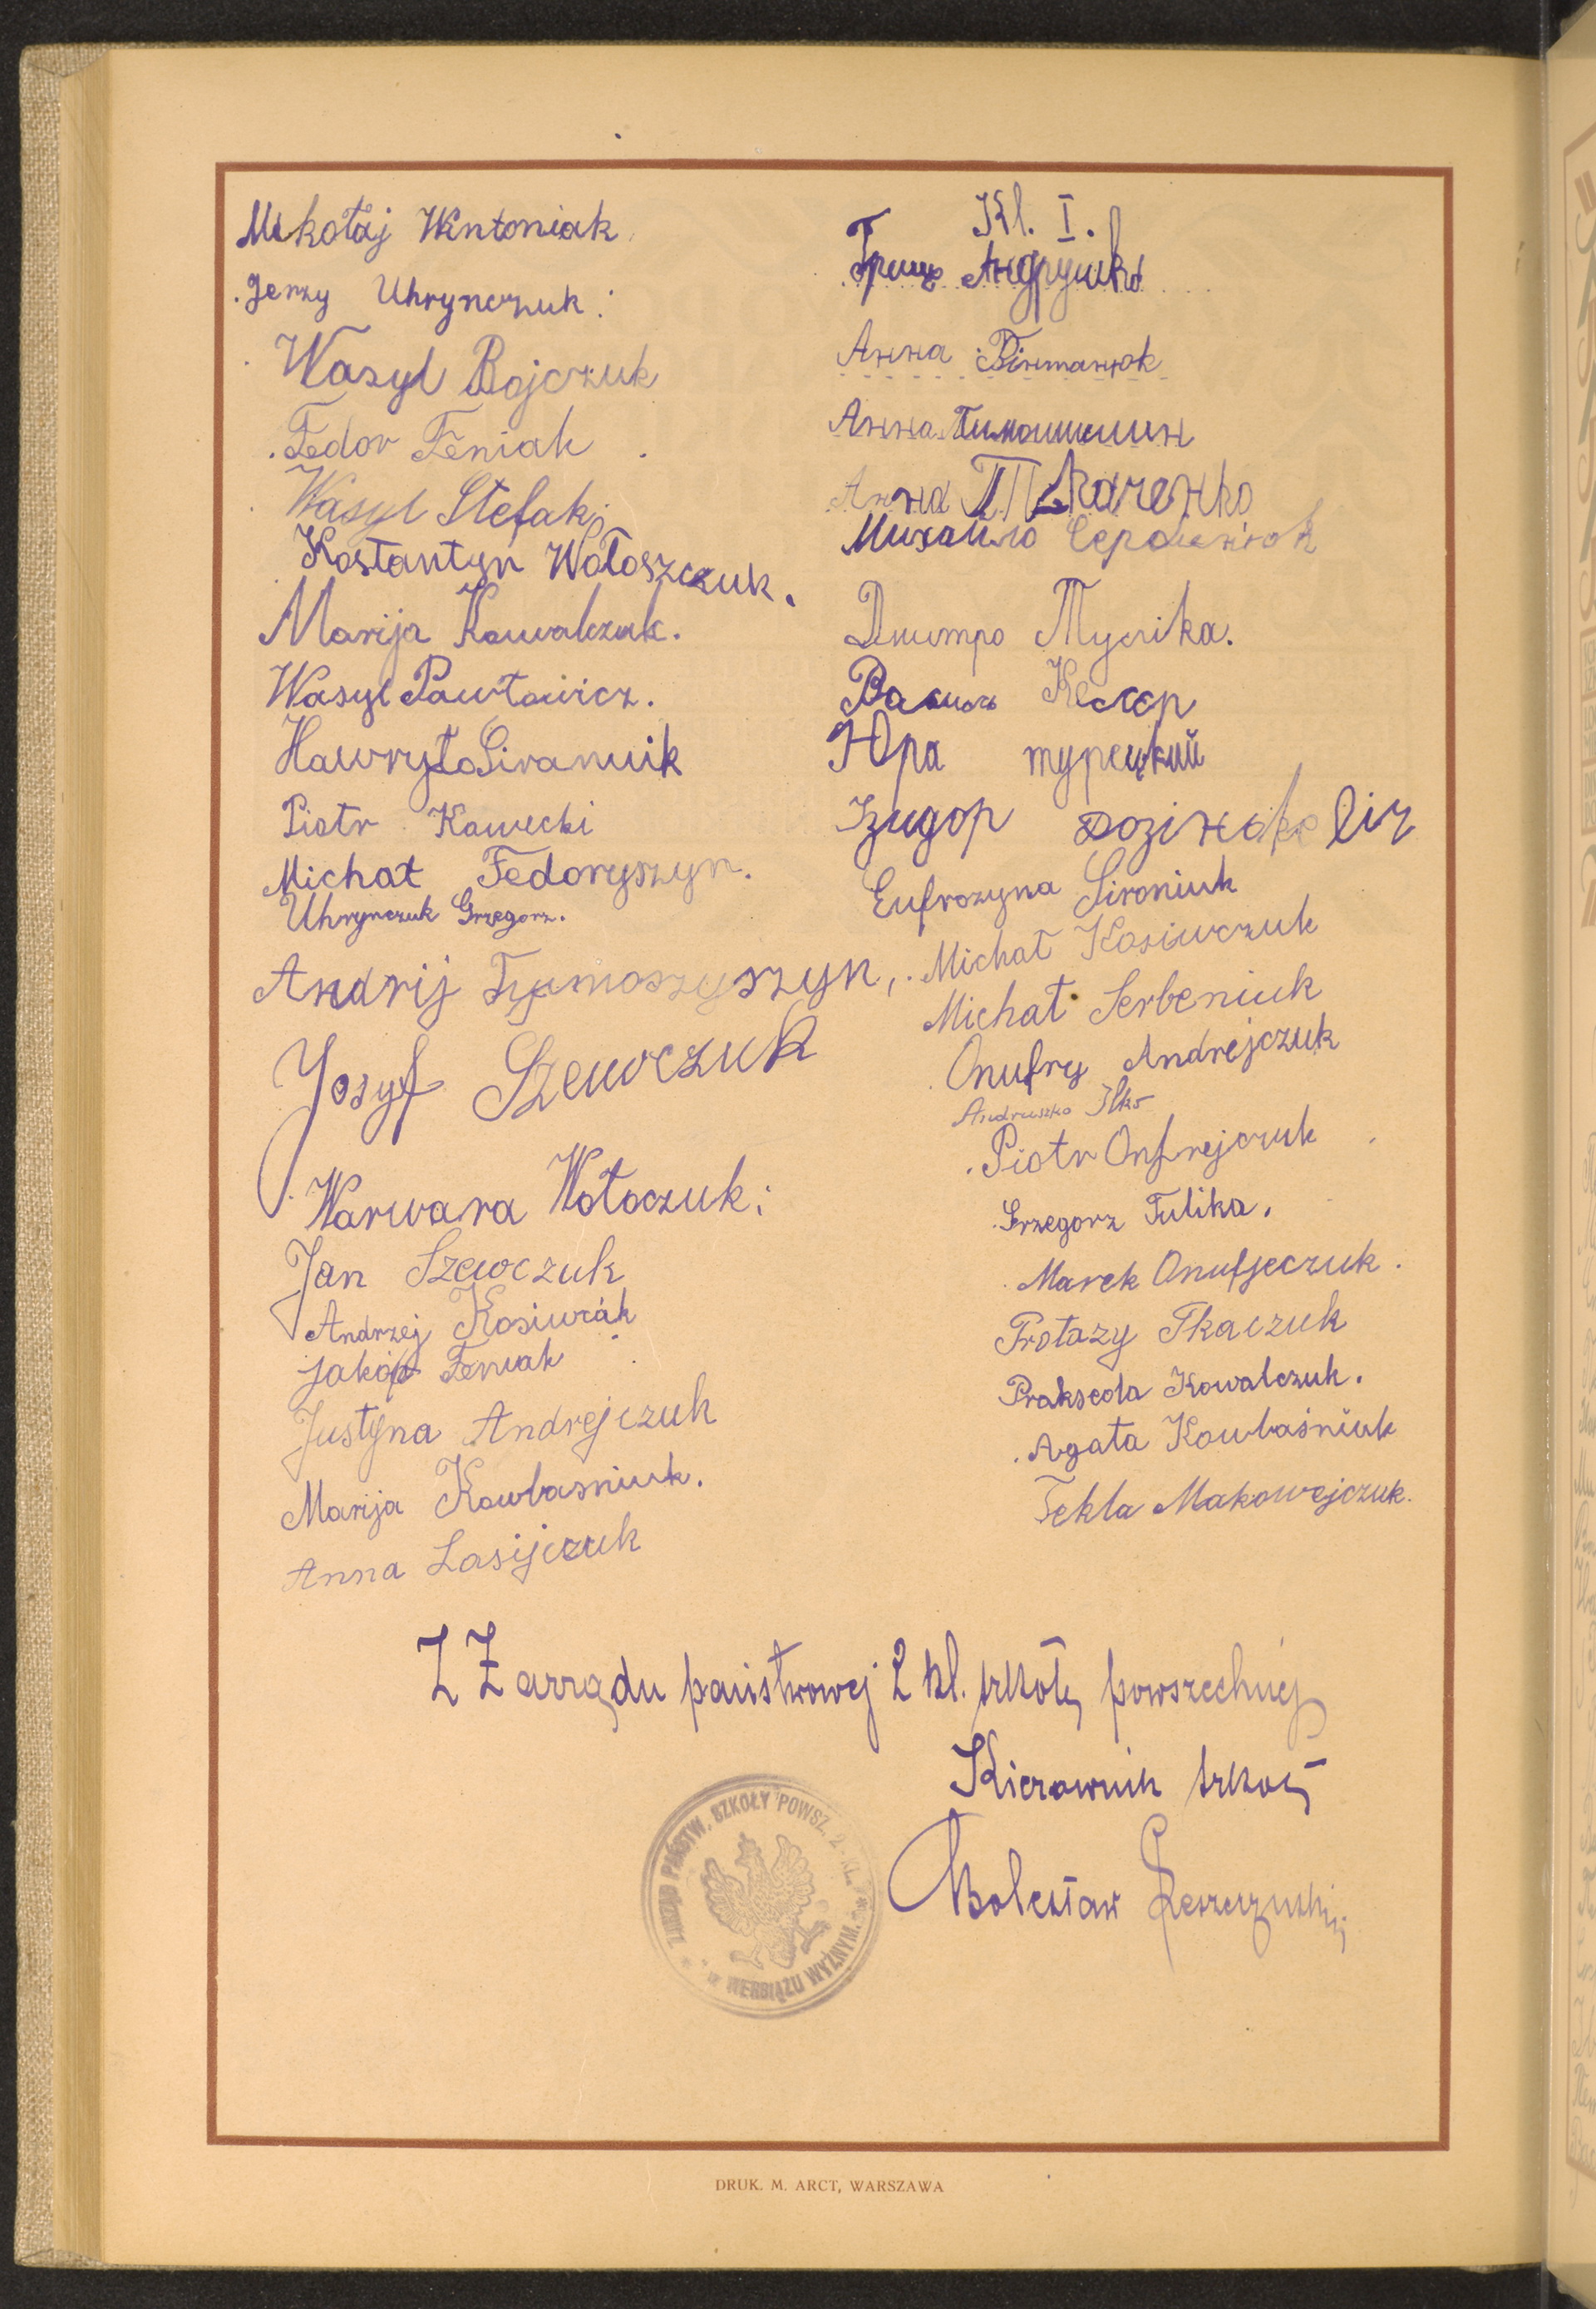 Mikołaj Wintoniak
Jerzy Uhrynczuk.
Wasyl Bojczuk
Fedor Feniak
Wasyl Stefak
Kostantyn Wołoszczuk.
Marija Kowalczuk.
Wasyl Pawłowicz.
Hawryło Siraniuk
Piotr Kawecki
Michał Fedoryszyn.
Uhrynczuk Grzegorz.
Andrij Tymoszyszyn,
Josyf Szewczuk
Warwara Wołoczuk:
Jan Szewczuk
Andrzej Kosiurak
Jakób Feniak
Justyna Andrejczuk
Marija Kowbasniuk.
Anna Lasijczuk
Kl. I.
Гриць Андрушко
Анна Вінтанюк
Анна Тимошишин
Анна Ткаченко
Михайло
Дмитро Тулика.
Василь
Юра турецкий
Eufrozyna Sironiuk
Michał Kosiwczuk
Michał Serbeniuk
Onufry Andrejczuk
Andruszko Ilko
Piotr Onfrejczuk
Grzegorz Tulika.
Marek Onufjeczuk.
Protazy Tkaczuk
Prakseda Kowalczuk.
Agata Kowbaśniuk
Tekla Makowejczuk.
Z Zarządu państwowej 2 kl. szkoły powszechnej
Kierownik szkoły
Bolesław
ZARZĄD PAŃSTW. SZKOŁY POWSZ. 2-KL.
w WERBIĄŻU WYŻNYM.
DRUK. M. ARCT, WARSZAWA